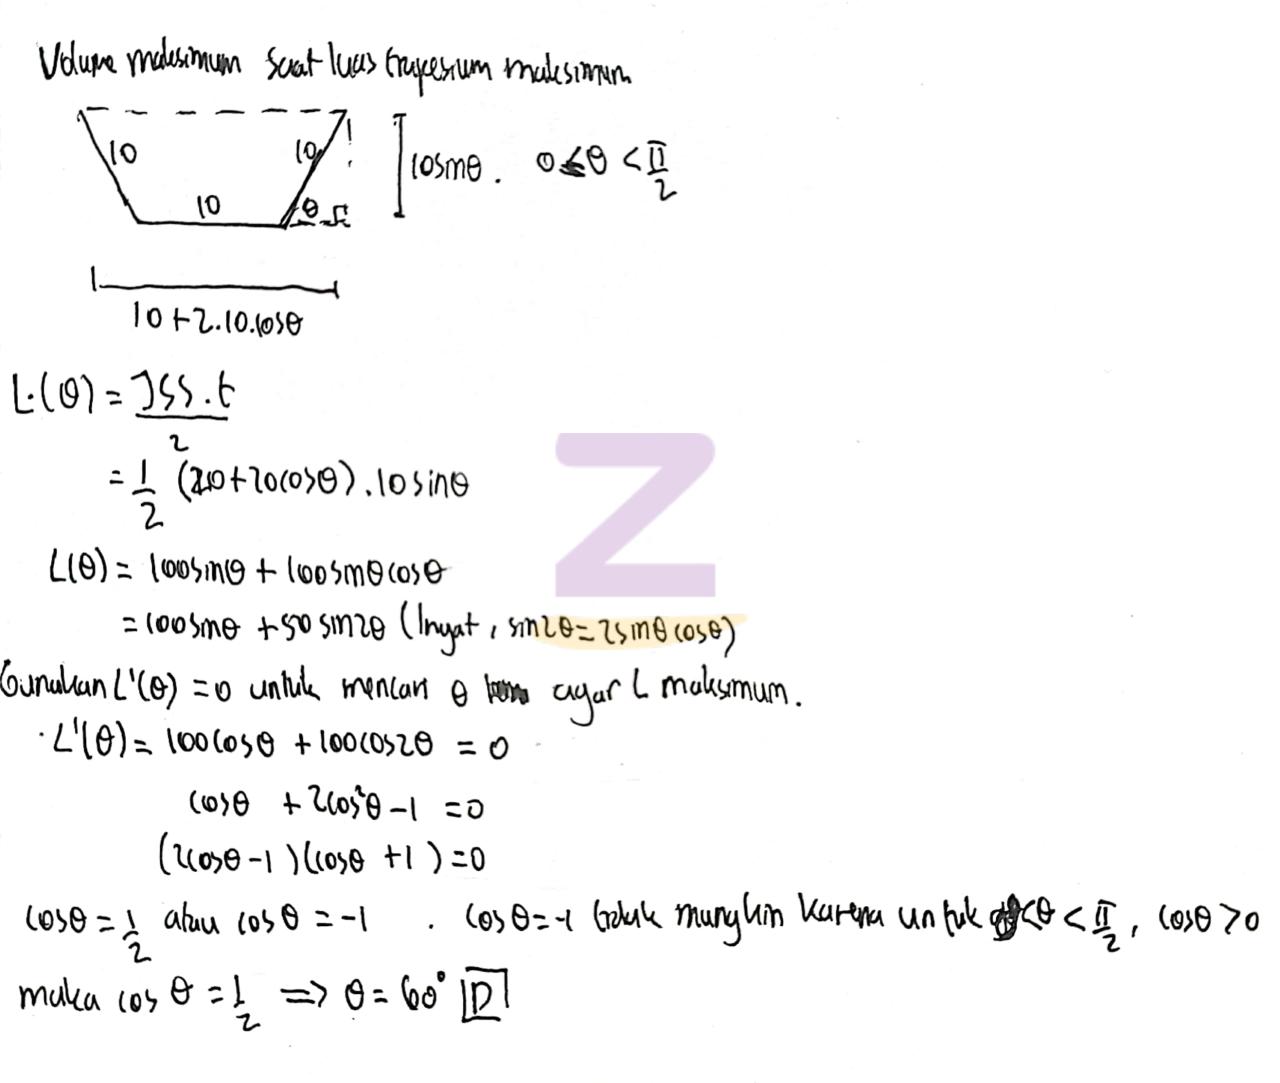 Volume maksimum saat luas trapesium maksimum
10 10 10 θ
10 sin θ. 0 ≤ θ < π/2
10 + 2.10.cos θ
L(θ) = JSS.t / 2
= 1/2 (20 + 20 cos θ). 10 sin θ
L(θ) = 100 sin θ + 100 sin θ cos θ
= 100 sin θ + 50 sin 2θ (Ingat, sin 2θ = 2 sin θ cos θ)
Gunakan L'(θ) = 0 untuk mencari θ agar L maksimum.
L'(θ) = 100 cos θ + 100 cos 2θ = 0
cos θ + 2cos²θ - 1 = 0
(2cos θ - 1)(cos θ + 1) = 0
cos θ = 1/2 atau cos θ = -1 . cos θ = -1 tidak mungkin karena untuk 0 < θ < π/2, cos θ > 0
maka cos θ = 1/2 => θ = 60° D
Z